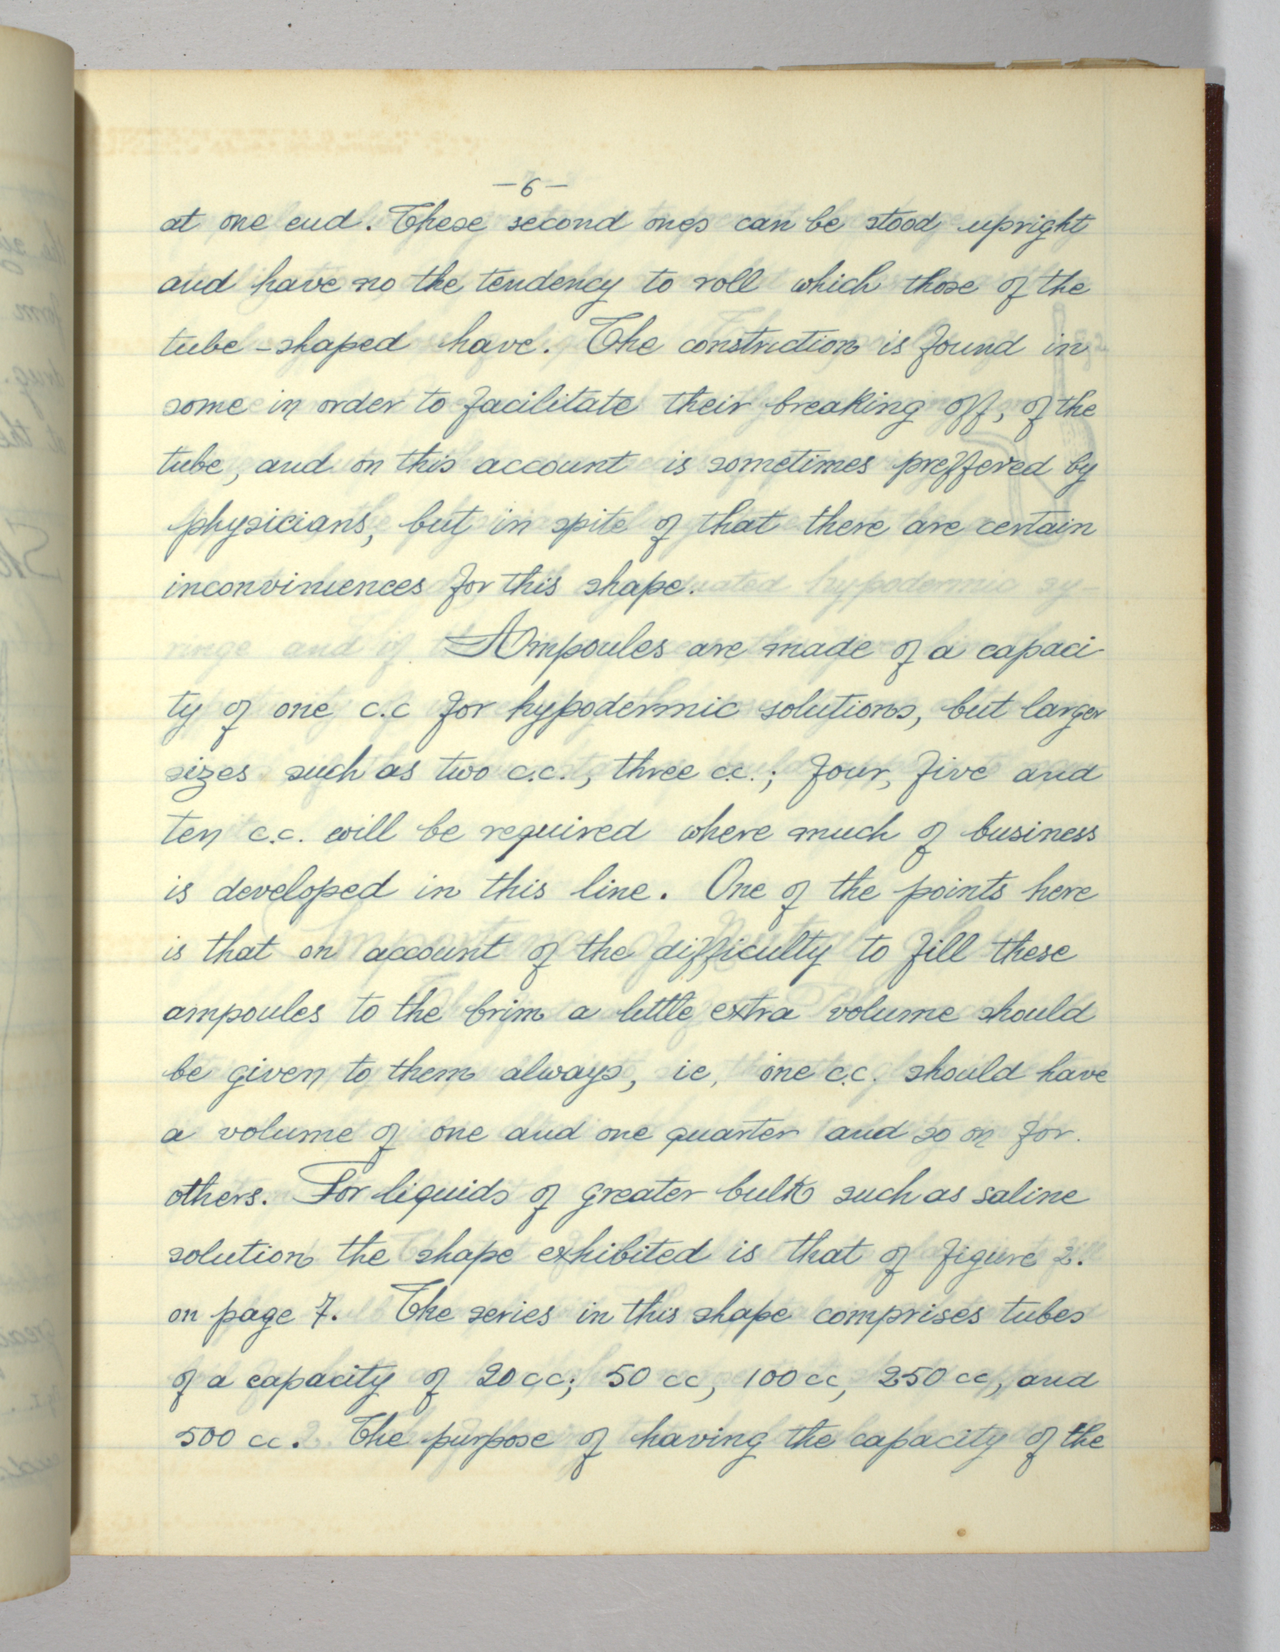 -6-
at one end. These second ones can be stood upright
and have no the tendency to roll which those of the
tube-shaped have. The constriction is found in
some in order to facilitate their breaking off, of the
tube, and on this account is sometimes preffered by
physicians, but in spite of that there are certain
inconviniences for this shape.
Ampoules are made of a capaci-
ty of one c.c for hypodermic solutions, but larger
sizes such as two c.c., three c.c.; four, five and
ten c.c. will be required where much of business
is developed in this line. One of the points here
is that on account of the difficulty to fill these
ampoules to the brim a little extra volume should
be given to them always, ie, one c.c. should have
a volume of one and one quarter and so on for.
others. For liquids of greater bulk such as saline
solution the shape exhibited is that of figure 2.
on page 7. The series in this shape comprises tubes
of a capacity of 20 cc; 50 cc, 100 cc, 250 cc, and
500 cc. The purpose of having the capacity of the